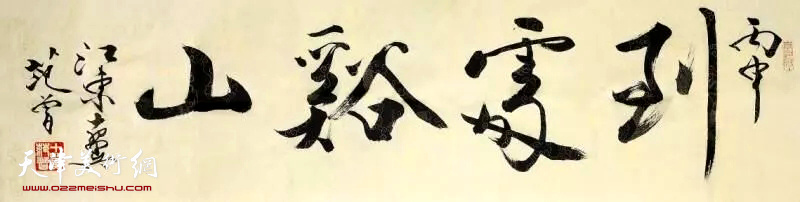 丙申
到處谿山
江東十翼
范曾
天津美術網
www.022meishu.com